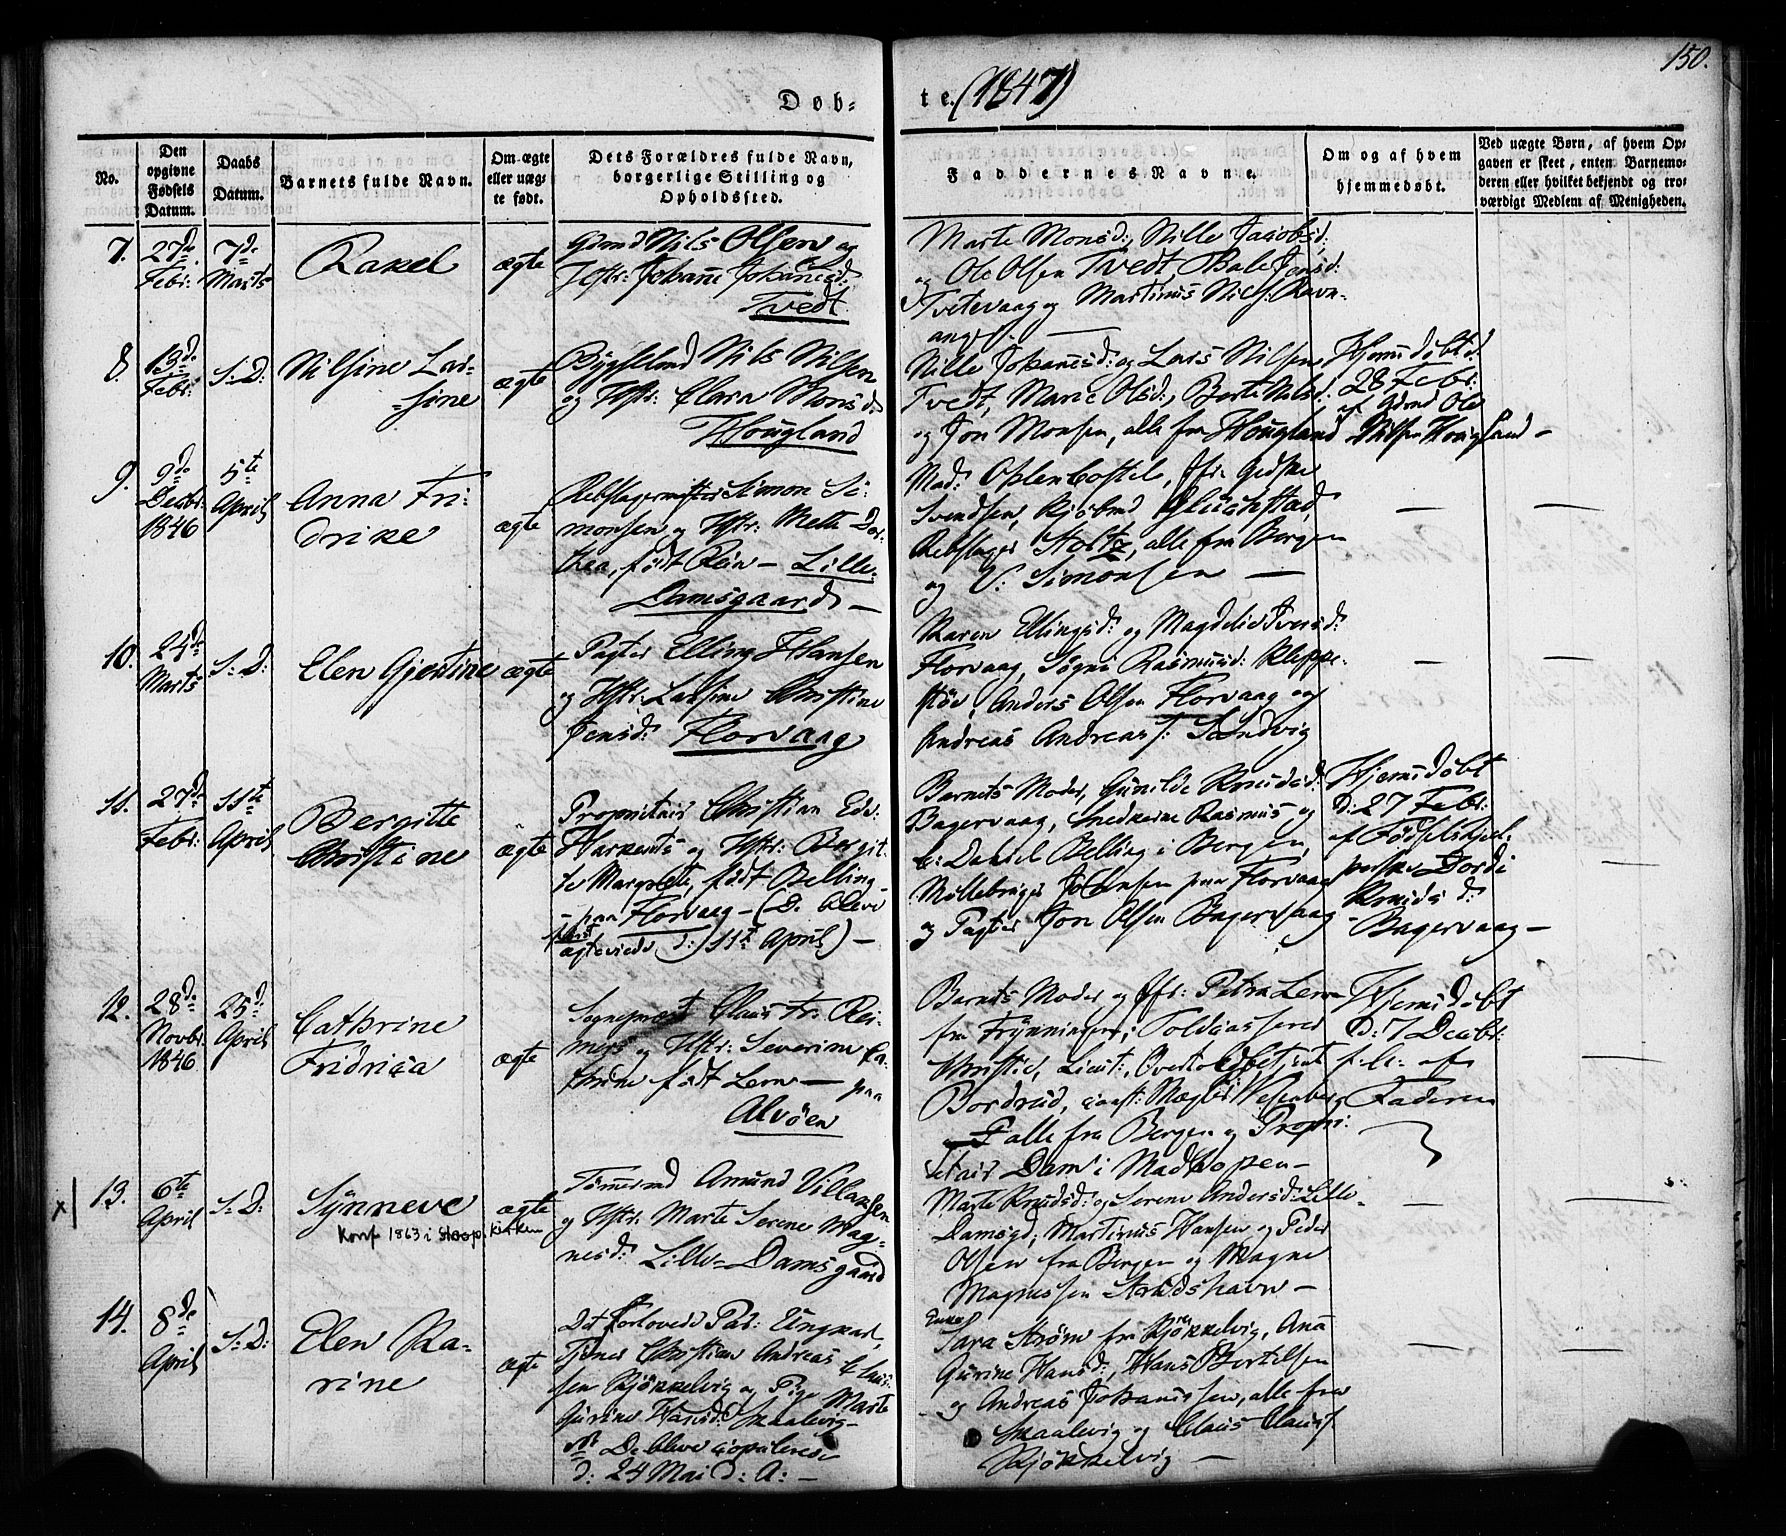 150.
Døb-te. (1847)
No.
Den opgivne Fødsels Datum.
Daabs Datum.
Barnets fulde Navn.
Om ægte eller uægte født.
Dets Forældres fulde Navn, borgerlige Stilling og Opholdssted.
Faddernes Navne.
Om og af hvem hjemmedøbt.
Ved uægte Børn, af hvem Opgaven er skeet, enten Barnemoderen eller hvilket bekjendt og troværdigt Medlem af Menigheden.
7.
27de
Febr:
7de
Marts
Rakel
ægte
Gbmd Nils Olsen og
Hstr: Johanne Johannesd:
Tvedt
Marte Monsd:, Nille Jacobsd:
og Ole Olsen Tvedt,
Tvetevaag og Martinus Nils: Ravn-
anger.
8.
13de
Febr:
S: D:
Nilsine Las-
sine
ægte
Bygselmd Nils Nilsen
og Hstr: Clara Monsd:
Hougland
Nille Johannesd: og Lars Nilsen
Tvedt, Marie Olsd:, Berte Nilsd:
og Jon Monsen, alle fra Hougland
Hjemmedøbt d:
28 Febr:
af Gbmd Ole
Nilsen Hougland -
9.
9de
Decbr:
1846
5te
April
Anna Fri-
drike
ægte
Rebslagermester Simon Si-
monsen og Hstr: Mette Dor-
thea, født Rein - Lille
Damsgaard -
Mad: Oplenbostele, Jfr: Gedske
Svendsen, Kjøbmd Gluckstad,
Rebslager Stoltz, alle fra Bergen
og V: Simonsen -
10.
24de
Marts
S: D:
Elen Gjertine
ægte
Pagter Elling Hansen
og Hstr: Lassine Christine
Jensd: Florvaag
Karen Ellingsd: og Magdelie Iversd:
Florvaag, Søgni Rasmusd: Kleppe-
støe, Anders Olsen Florvaag og
Andreas Andreas: Sundvig
11.
27de
Febr:
11te
April
Bergitte
Christine
ægte
Proprietair Christian Edv:
og Hstr: Bergit-
te Margrete, født Belling -
- paa Florvaag - (De bleve
først
ægteviede d: 11te April) -
Barnets Moder, Gunilde Knudsd:
Bagervaag, Snedkerne Rasmus og
Daniel Belling i Bergen,
Møllebruger Johnsen paa Florvaag
og Pagter Jon Olsen Bagervaag
Hjemmedøbt
D: 27 Febr:
af Fødselshjel-
perske Dordi
Knudsd:
- Bagervaag -
12.
28de
Novbr:
1846
25de
April
Cathrine
Fridrica
ægte
Sognepræst Claus Fr: Rei-
mers og Hstr: Severine Ca-
thrine født Lern - paa
Alvøen
Barnets Moder og Jfr: Petra Lern
fra Frynningen; Toldcasserer
Christie, Lieut:
Bordrud, const: Mægler Wesenberg
alle fra Bergen og Propri-
tetair Dam i Madhopen -
Hjemmedøbt
D: 7 Decbr:
f: A: af
Faderen
13.
6te
April
S: D:
Synneve
Konf 1863 i Skoop.kirken
ægte
Tømmermd Amund Villassen
og Hstr: Marte Serene Mag-
nesd: Lille-Damsgaard
Marte Knudsd: og Serene Andersd: Lille-
Damsgd; Martinus Hansen og Peder
Olsen fra Bergen og Magne
Magnessen Strudshavn -
14.
8de
April
S: D:
Elen Ka-
rine
ægte
Det forlovede Par: Ungkarl,
Tjener Christian Andreas Claus-
sen Kjøkkelvig og Pige Marte
Gurine Hansd: Skaalevig -
NB De bleve copulerede
d: 24 Mai d: A: -
Enke
Sara Strøm fra Kjøkkelvig, Ana
Gurine Hansd:, Hans Bertelsen
og Andreas Johannissen, alle fra
Skaalevig og Claus Clauss:
Kjøkkelvig -